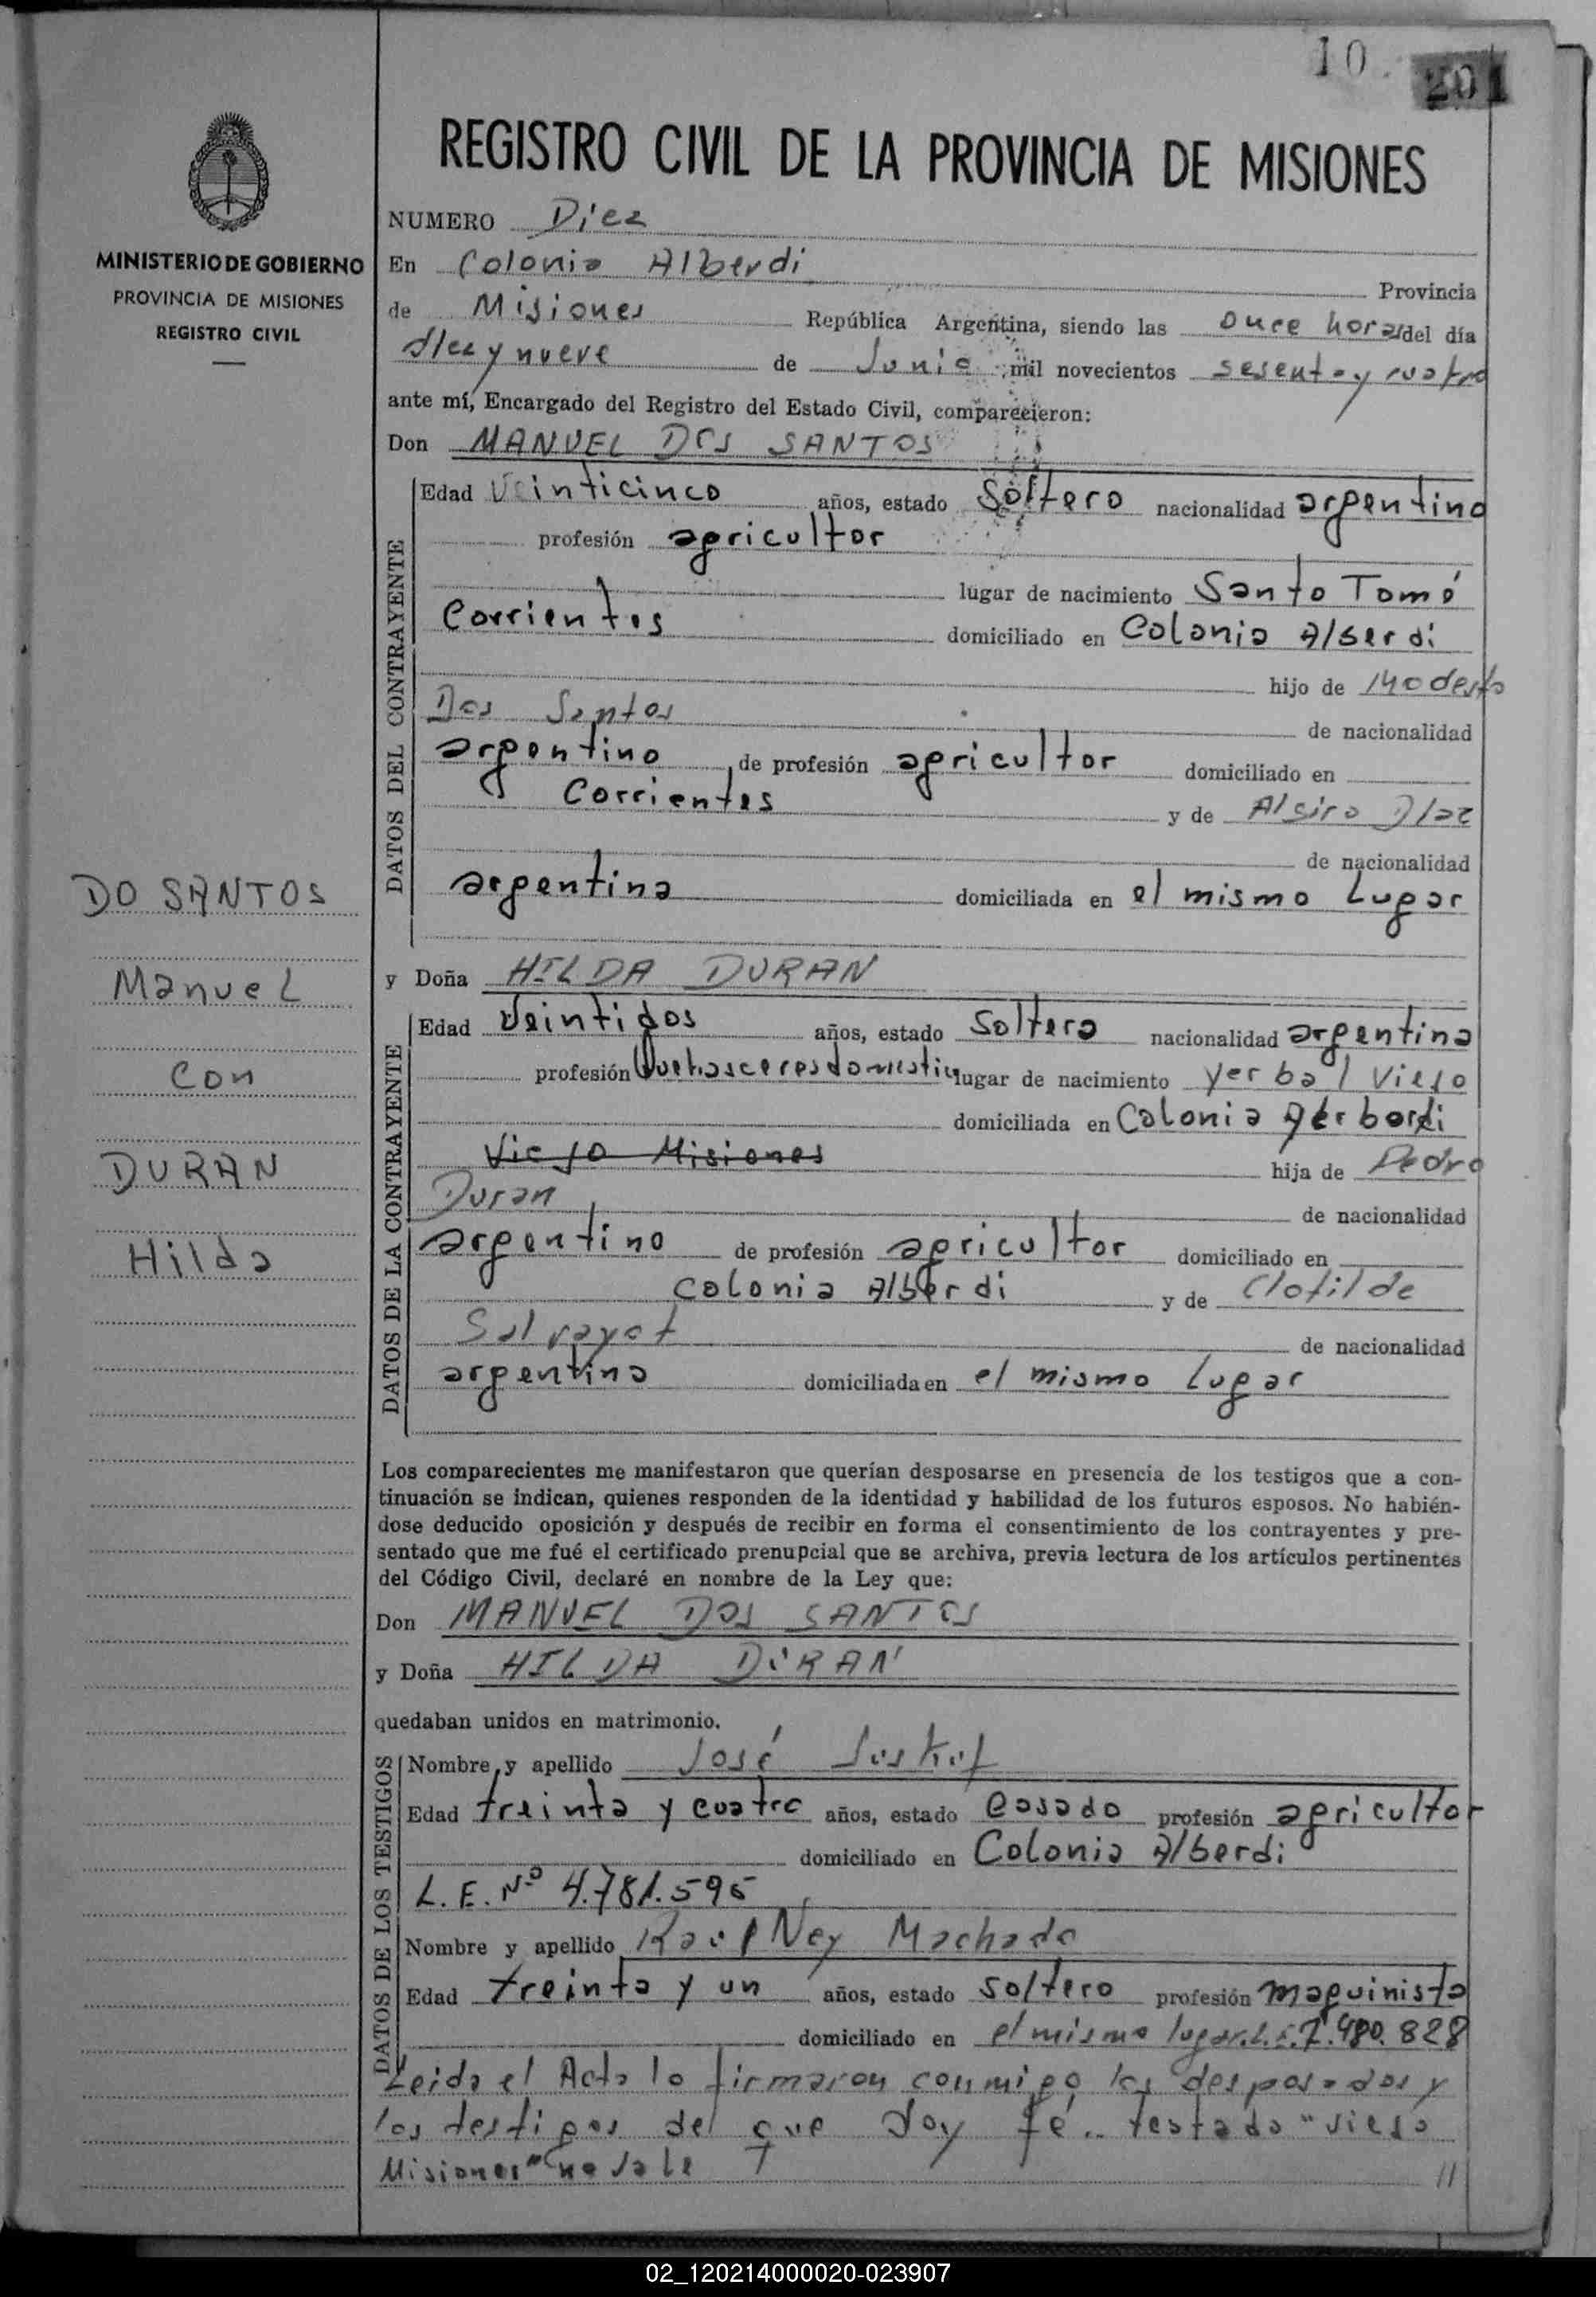 10. 201
REGISTRO CIVIL DE LA PROVINCIA DE MISIONES
MINISTERIO DE GOBIERNO
PROVINCIA DE MISIONES
REGISTRO CIVIL
DO SANTOS
Manuel
Con
DURAN
Hilda
NUMERO Diez
En Colonia Alberdi Provincia
de Misiones República Argentina, siendo las Once horas del día
diez y nueve de Junio mil novecientos sesenta y cuatro
ante mí, Encargado del Registro del Estado Civil, comparecieron:
Don MANUEL DOS SANTOS
DATOS DEL CONTRAYENTE
Edad Veinticinco años, estado Soltero nacionalidad argentino
profesión agricultor
lugar de nacimiento Santo Tomé
Corrientes domiciliado en Colonia Alberdi
hijo de Modesto
Dos Santos de nacionalidad
argentino de profesión agricultor domiciliado en
Corrientes y de Alsira Diaz
de nacionalidad
argentina domiciliada en el mismo Lugar
y Doña HILDA DURAN
DATOS DE LA CONTRAYENTE
Edad Veintidos años, estado Soltera nacionalidad argentina
profesión lugar de nacimiento Yerbal Viejo
domiciliada en Colonia
Viejo Misiones hija de Pedro
Duran de nacionalidad
argentino de profesión agricultor domiciliado en
Colonia Alberdi y de Clotilde
de nacionalidad
argentina domiciliada en el mismo Lugar
Los comparecientes me manifestaron que querían desposarse en presencia de los testigos que a con-
tinuación se indican, quienes responden de la identidad y habilidad de los futuros esposos. No habién-
dose deducido oposición y después de recibir en forma el consentimiento de los contrayentes y pre-
sentado que me fué el certificado prenupcial que se archiva, previa lectura de los artículos pertinentes
del Código Civil, declaré en nombre de la Ley que:
Don MANUEL DOS SANTOS
y Doña HILDA DURAN
quedaban unidos en matrimonio.
DATOS DE LOS TESTIGOS
Nombre y apellido José
Edad treinta y cuatro años, estado Casado profesión agricultor
domiciliado en Colonia Alberdi
L.E. Nº 4.781.595
Nombre y apellido Raul Ney Machado
Edad treinta y un años, estado soltero profesión maquinista
domiciliado en el mismo lugar. L.E. 7.480.828
Leida el Acta la firmaron conmigo los desposados y
los testigos del que doy fé.. testado "viejo
Misiones" no vale //
02_120214000020-023907